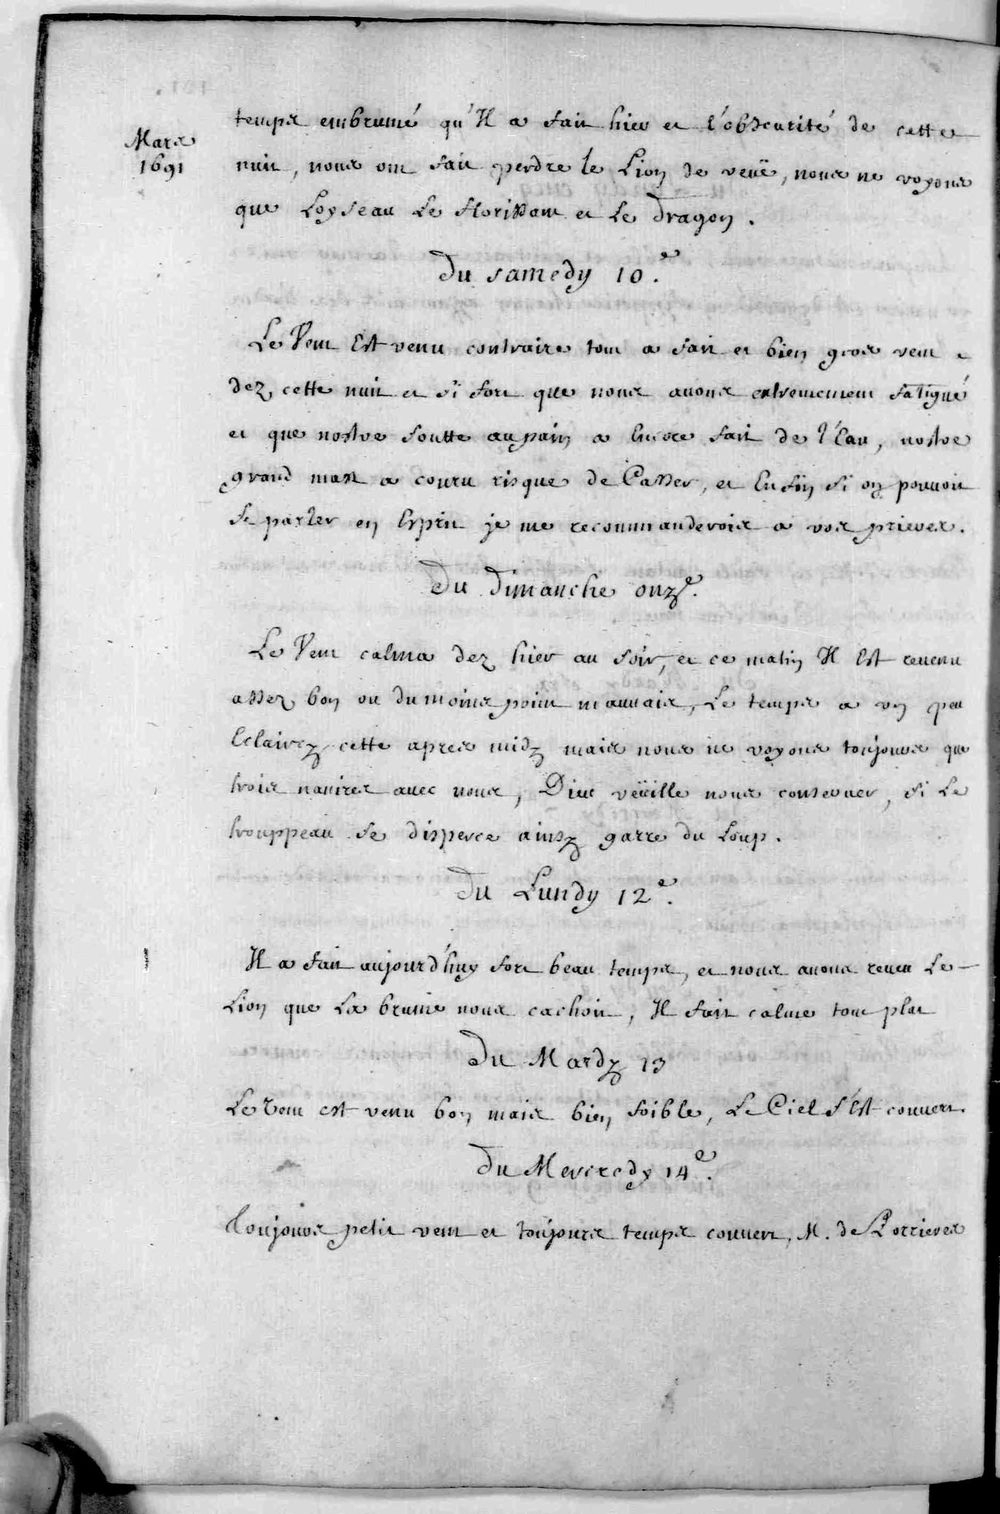 Mars
1691
temps embrumé qu'Il a fait hier et l'obscurité de cette
nuit, nous ont fait perdre le Lion de veuë, nous ne voyons
que Loyseau Le florissant et Le Dragon.
Du samedy 10.e
Le Vent Est venu contraire tout a fait et bien gros vent
dez cette nuit et si fort que nous auons extremement fatigué
et que nostre soutte au pain a Encore fait de l'Eau, nostre
grand mast a couru risque de Casser, et Enfin si on pouuoit
se parler en Esprit je me recommanderois a vos prieres.
Du Dimanche onze.
Le Vent calma dez hier au soir, et ce matin Il Est reuenu
assez bon ou du moins point mauuais, Le temps a un peu
Eclairey cette apres midy mais nous ne voyons toujours que
trois nauires auec nous, Dieu veüille nous conseruer, si Le
trouppeau se disperce ainsy garre du Loup.
Du Lundy 12.e
Il a fait aujourd'huy fort beau temps, et nous auons reueu Le
Lion que La brume nous cachoit, Il fait calme tout plat
Du Mardy 13
Le Vent est venu bon mais bien foible, Le Ciel s'Est couuert.
Du Mercredy 14.e
Toujours petit vent et toujours temps couuert, M. de Porrieres